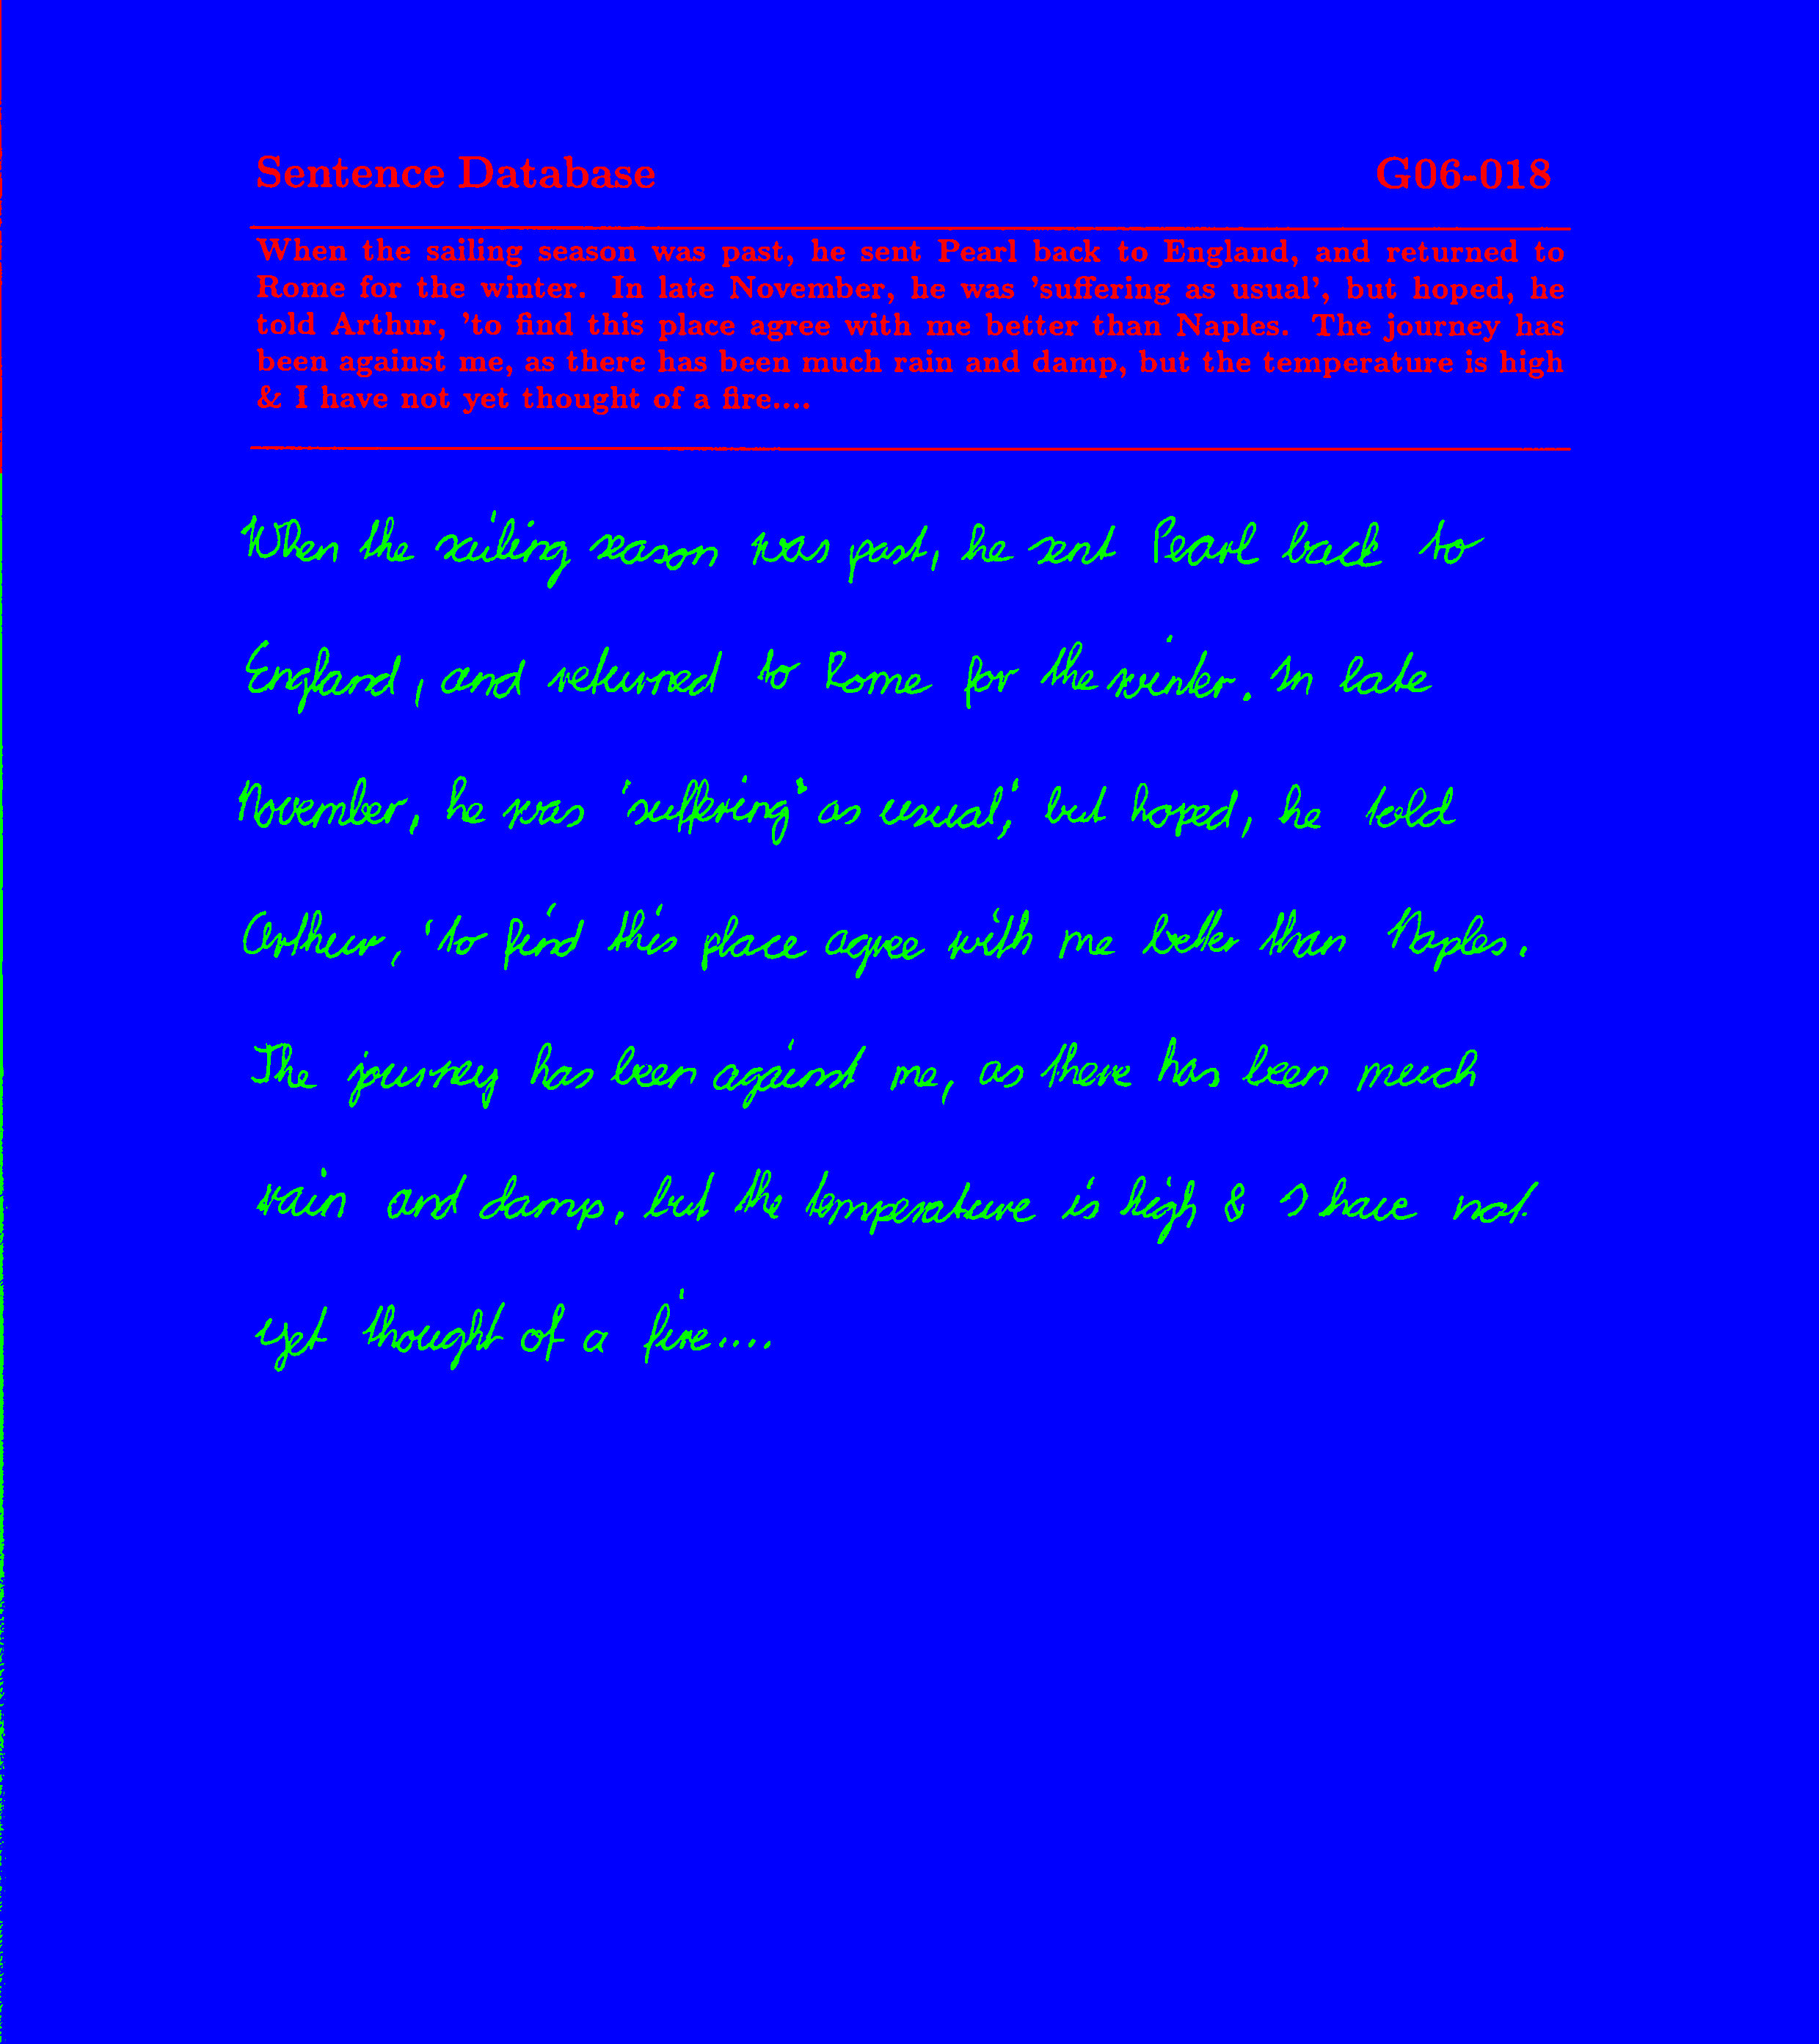 Sentence Database G06-018
When the sailing season was past, he sent Pearl back to England, and returned to
Rome for the winter. In late November, he was 'suffering as usual', but hoped, he
told Arthur, 'to find this place agree with me better than Naples. The journey has
been against me, as there has been much rain and damp, but the temperature is high
& I have not yet thought of a fire....
When the sailing season was past, he sent Pearl back to
England, and returned to Rome for the winter. In late
November, he was 'suffering' as usual', but hoped, he told
Arthur, 'to find this place agree with me better than Naples.
The journey has been against me, as there has been much
rain and damp, but the temperature is high & I have not
yet thought of a fire....